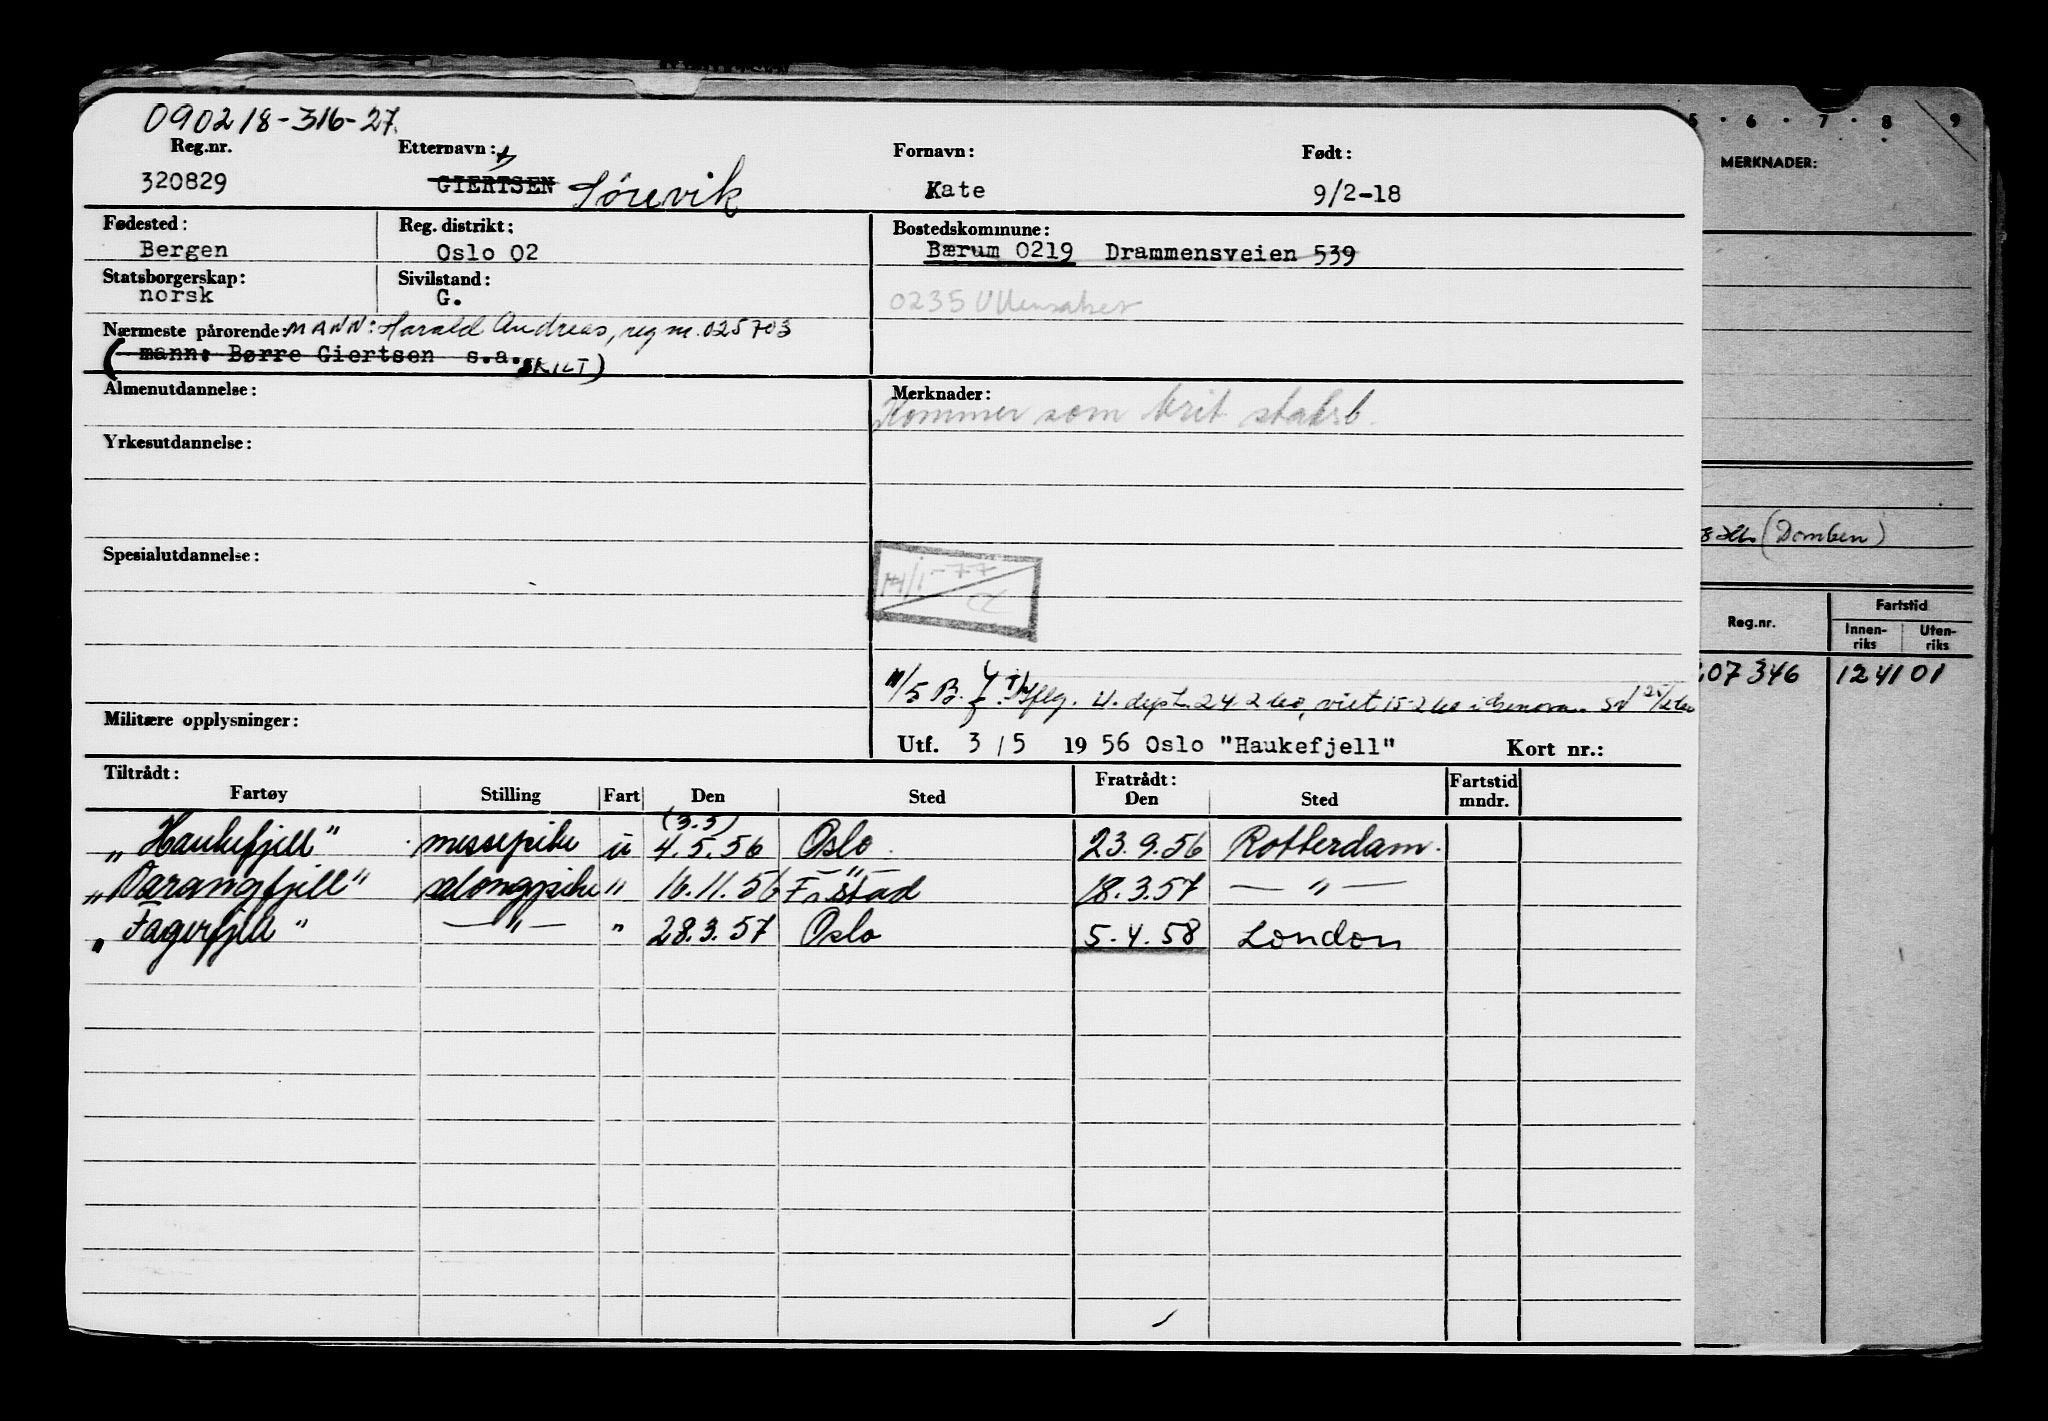 090218-316-27.
Reg.nr. Etternavn: Fornavn: Født:
320829 GIERTSEN Sørevik Kate 9/2-18
Fødested: Reg. distrikt: Bostedskommune:
Bergen Oslo 02 Bærum 0219 Drammensveien 539
Statsborgerskap: Sivilstand:
norsk G. 0235 Ullensaker
Nærmeste pårørende: MANN: Harald Andreas, reg nr. 025703
(mann: Børre Giertsen s.a. SKILT)
Almenutdannelse: Merknader:
Kommer som brit statsb.
Yrkesutdannelse:
Spesialutdannelse:
14/1-77
Militære opplysninger:
Utf. 3/5 1956 Oslo "Haukefjell" Kort nr.:
Tiltrådt: Fratrådt: Fartstid
Fartøy Stilling Fart Den Sted Den Sted mndr.
(3.5)
"Haukefjell" messepike u 4.5.56 Oslo 23.9.56 Rotterdam.
"Varangfjell" salongpike " 16.11.56 F.stad 18.3.57 — " —
"Fagerfjell" — " — " 28.3.57 Oslo 5.4.58 London
5 . 6 . 7 . 8 9
MERKNADER:
(Domben)
Fartstid
Reg.nr. Innen-riks Uten-riks
07346 124101